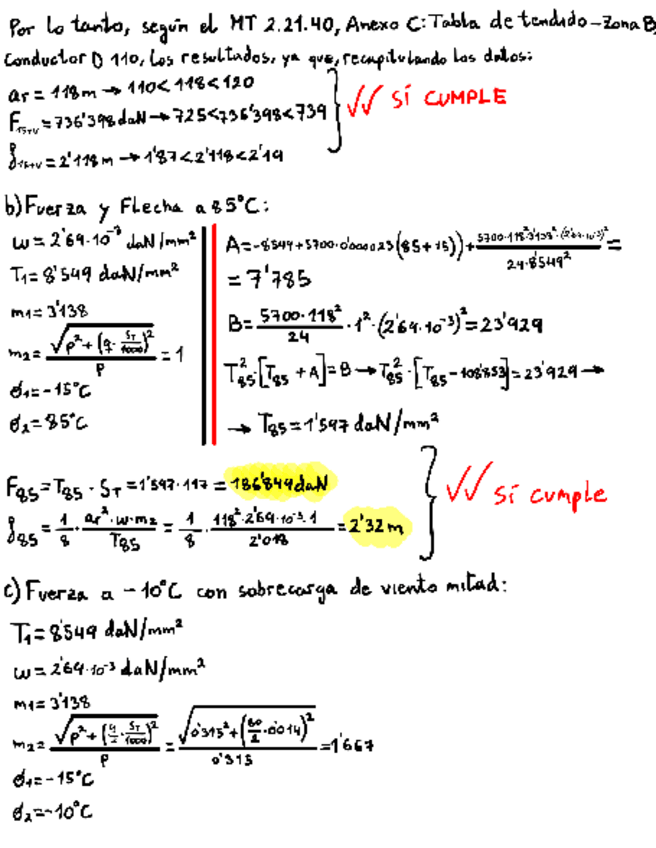 Por lo tanto, según el MT 2.21.40, Anexo C: Tabla de tendido-Zona B,
Conductor D 110, los resultados, ya que, recapitulando los datos:
ar = 118m → 110<118<120
F15+V = 736'398 daN → 725<736'398<739
f15+V = 2'118 m → 1'87<2'118<2'19
SÍ CUMPLE
b) Fuerza y Flecha a 85°C:
w = 2'69·10^-3 daN/mm²
T1 = 8'549 daN/mm²
m1 = 3'138
m2 = √(p² + (q · ST/1000)²) / p = 1
θ1 = -15°C
θ2 = 85°C
A = -8549 + 5700·0'000023(85+15)) + 5700·118²·3'138²·(2'69·10^-3)² / 24·8'549² =
= 7'785
B = 5700·118² / 24 · 1² · (2'69·10^-3)² = 23'929
T²85·[T85 + A] = B → T²85·[T85 - 108'853] = 23'929 →
→ T85 = 1'597 daN/mm²
F85 = T85 · ST = 1'597·117 = 186'849 daN
f85 = 1/8 · ar²·w·m2 / T85 = 1/8 · 118²·2'69·10^-3·1 / 2'018 = 2'32 m
Sí cumple
c) Fuerza a -10°C con sobrecarga de viento mitad:
T1 = 8'549 daN/mm²
w = 2'69·10^-3 daN/mm²
m1 = 3'138
m2 = √(p² + (q/2 · ST/1000)²) / p = √(0'315² + (60/2 · 0'014)²) / 0'315 = 1'667
θ1 = -15°C
θ2 = -10°C